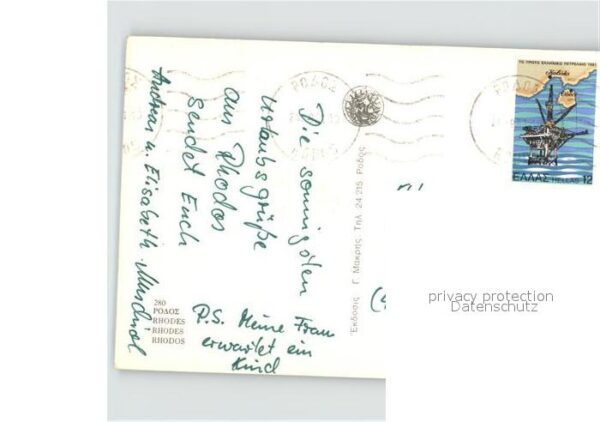 Die sonnigsten
Urlaubsgrüße
aus Rhodos
sendet Euch
Andreas u. Elisabeth
P.S. Meine Frau
erwartet ein
Kind
280
ΡΟΔΟΣ
RHODES
RHODES
RHODOS
Ἔκδοσις Γ. Μακρῆς Τηλ. 24 215 Ρόδος
ΤΟ ΠΡΩΤΟ ΕΛΛΗΝΙΚΟ ΠΕΤΡΕΛΑΙΟ 1981
ΕΛΛΑΣ HELLAS 12
ΡΟΔΟΣ
privacy protection
Datenschutz